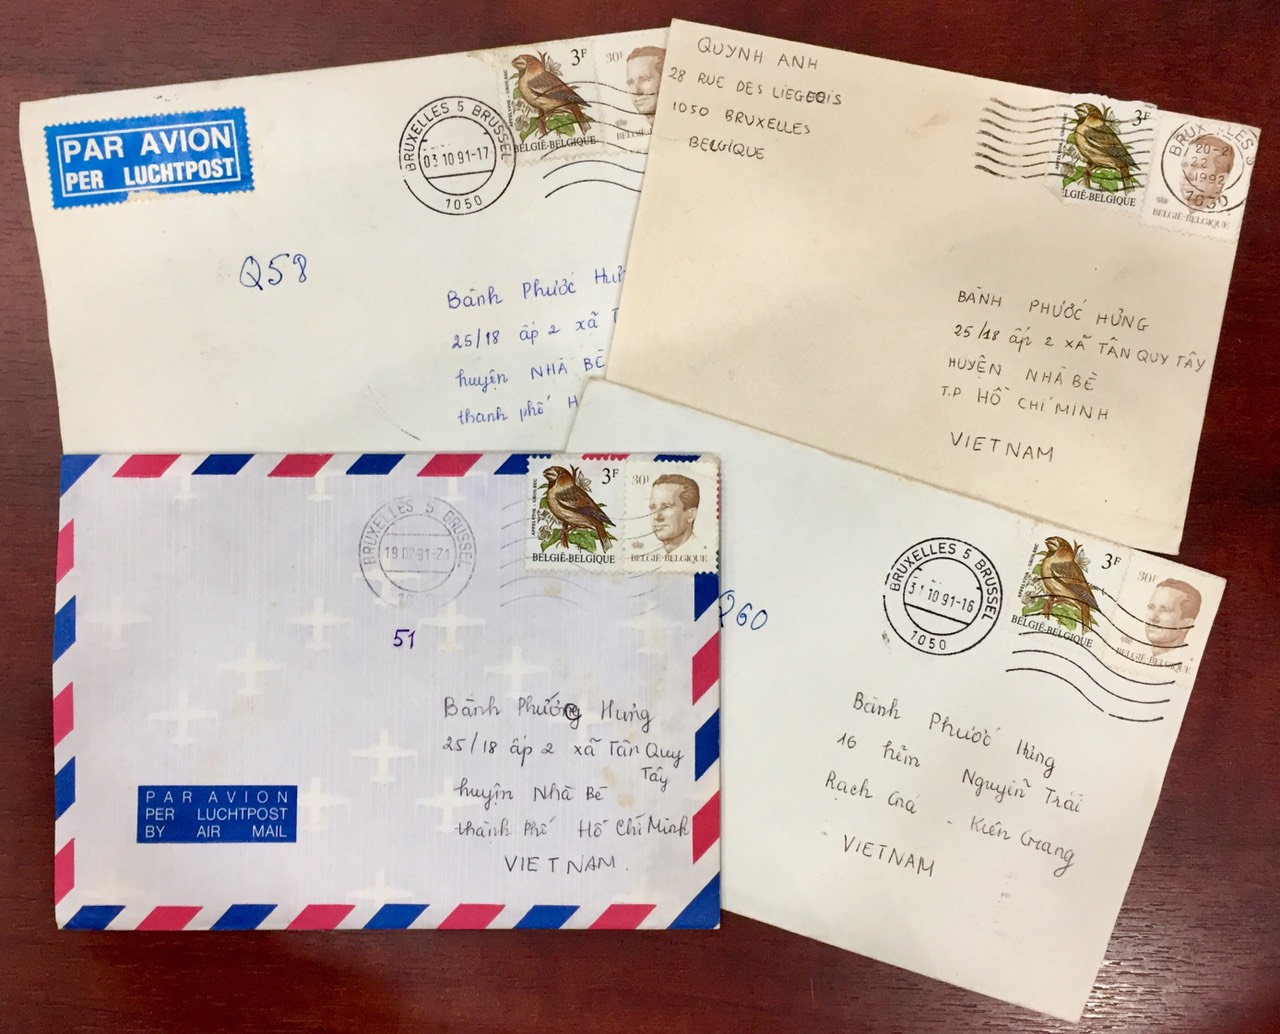 PAR AVION
PER LUCHTPOST
BRUXELLES 5 BRUSSEL
03.10.91-17
1050
3F
30F
BELGIË-BELGIQUE
BELGIË
Q58
Bành Phước
25/18 ấp 2 xã
huyện NHÀ BÈ
thanh phố H
QUYNH ANH
28 RUE DES LIEGEOIS
1050 BRUXELLES
BELGIQUE
3F
BELGIË-BELGIQUE
BELGIË-BELGIQUE
20-2
22
1992
BÀNH PHƯỚC HƯNG
25/18 ấp 2 XÃ TÂN QUY TÂY
HUYỆN NHÀ BÈ
T.P HỒ CHÍ MINH
VIETNAM
BRUXELLES 5 BRUSSEL
19.02.91-21
APPELVINK - GROS-BEC
3F
30F
BELGIË-BELGIQUE
BELGIË-BELGIQUE
51
Bành Phước Hưng
25/18 ấp 2 xã Tân Quy
Tây
huyện Nhà Bè
thành phố Hồ Chí Minh
VIETNAM.
PAR AVION
PER LUCHTPOST
BY AIR MAIL
Q60
BRUXELLES 5 BRUSSEL
31.10.91-16
1050
APPELVINK - GROS-BEC
3F
30F
BELGIË-BELGIQUE
BELGIË-BELGIQUE
Bành Phước Hưng
16 hẻm Nguyễn Trãi
Rạch Giá - Kiên Giang
VIETNAM